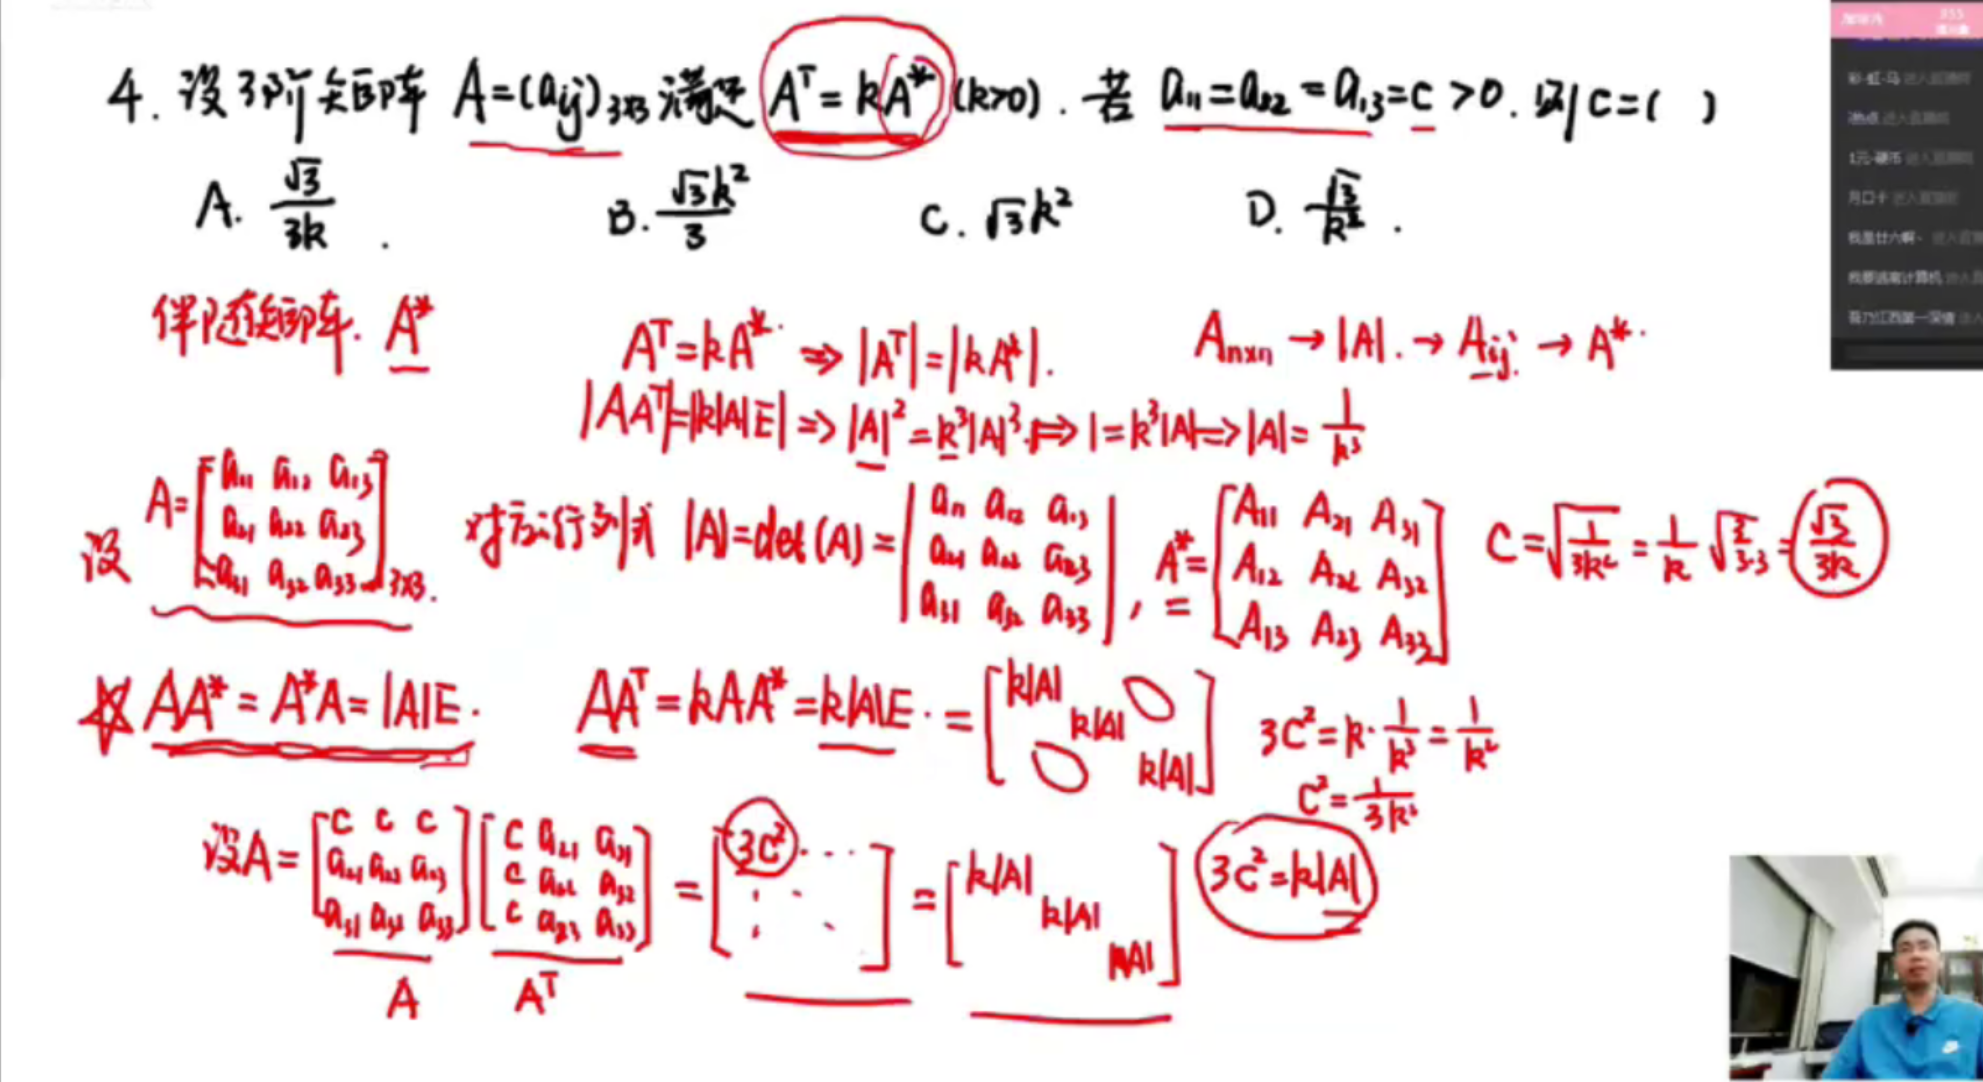 4. 设3阶矩阵 A=(aij)3×3 满足 Aᵀ=kA* (k>0). 若 a₁₁=a₂₂=a₁₃=c>0. 则c=( )
A. √3/3k . B. √3k²/3 C. √3k² D. √3/k² .
伴随矩阵. A*
Aᵀ=kA* ⇒ |Aᵀ|=|kA*|. Aₙₓₙ→|A|.→Aij→A*.
|AAᵀ|=|k|A|E| ⇒ |A|²=k³|A|³ ⇔ 1=k³|A| ⇒ |A|=1/k³
设 A=[a₁₁ a₁₂ a₁₃
a₂₁ a₂₂ a₂₃
a₃₁ a₃₂ a₃₃]3×3.
对应行列式 |A|=det(A)=|a₁₁ a₁₂ a₁₃
a₂₁ a₂₂ a₂₃
a₃₁ a₃₂ a₃₃| ,
A*= = [A₁₁ A₂₁ A₃₁
A₁₂ A₂₂ A₃₂
A₁₃ A₂₃ A₃₃]
C=√(1/3k²)=1/k √(3/3·3)=√3/3k
☆ AA*=A*A=|A|E. AAᵀ=kAA*=k|A|E.=[k|A|
k|A|
k|A|]
3C²=k·1/k³=1/k²
C²=1/3k²
设A=[c c c
a₂₁ a₂₂ a₂₃
a₃₁ a₃₂ a₃₃]
[c a₂₁ a₃₁
c a₂₂ a₃₂
c a₂₃ a₃₃]
=[3C²...]
=[k|A|
k|A|
k|A|]
3c²=k|A|
A Aᵀ
彩·虹·马 进入直播间
1元-硬币 进入直播间
月口卡 进入直播间